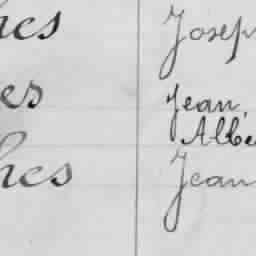 Joseph
es Jean,
Albe
hes Jean